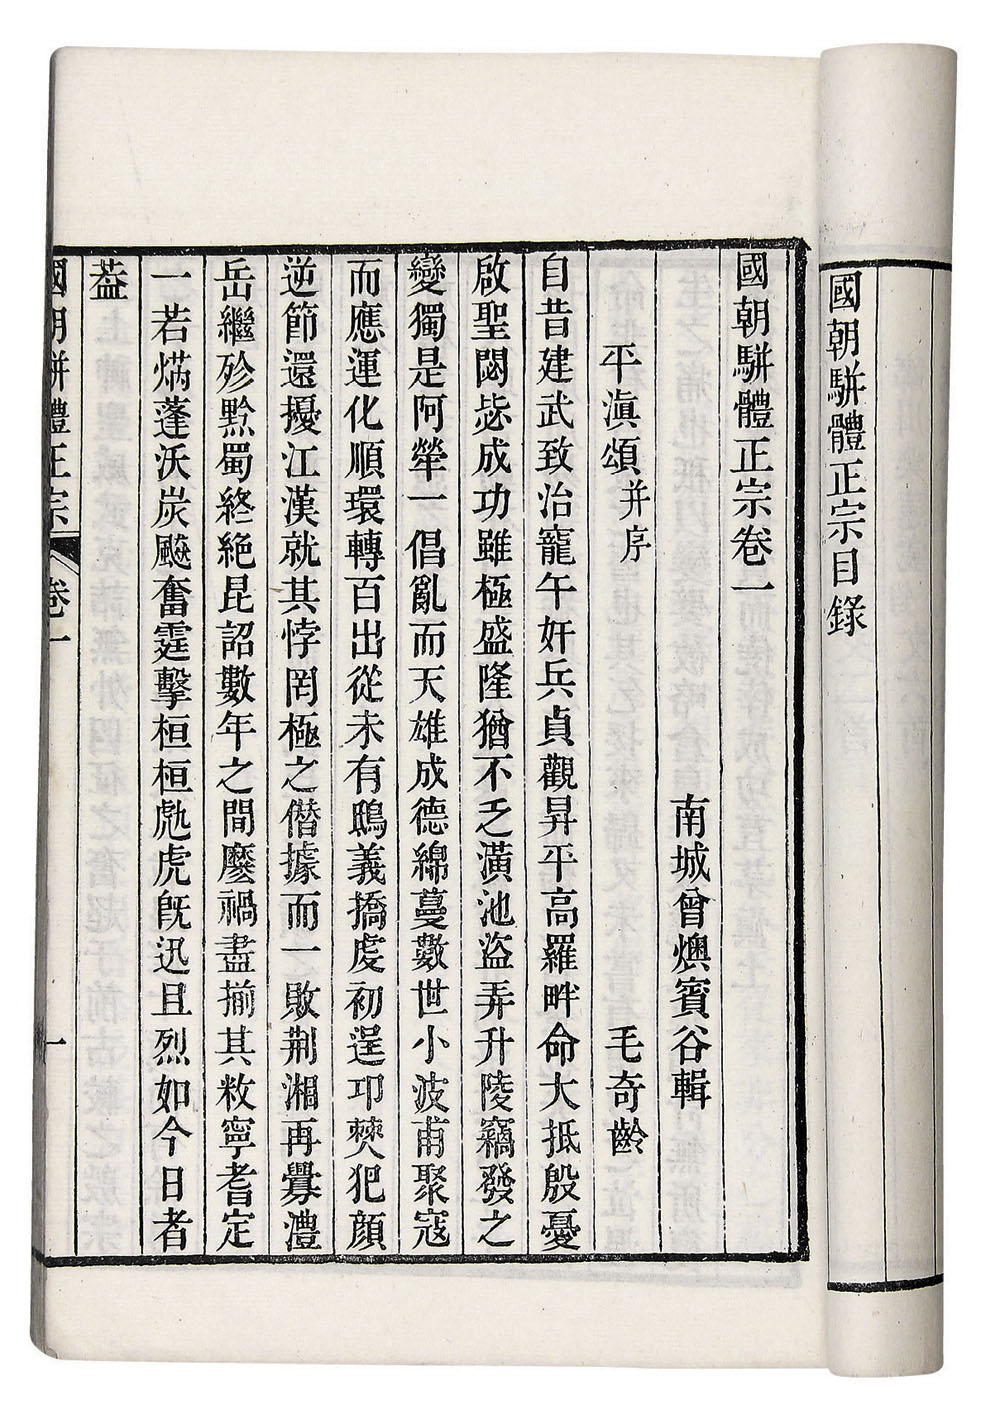 國朝駢體正宗目錄
國朝駢體正宗卷一
南城曾燠賓谷輯
平滇頌并序
毛奇齡
自昔建武致治寵午奸兵貞觀昇平高羅畔命大抵殷憂
啟聖閟毖成功雖極盛隆猶不乏潢池盜弄升陵竊發之
變獨是阿犖一倡亂而天雄成德綿蔓數世小波甫聚寇
而應運化順環轉百出從未有鴟義撟虔初逞卭僰犯顏
逆節還擾江漢就其悖罔極之僭據而一敗荆湘再釁澧
岳繼殄黔蜀終絕昆詔數年之間麼禍盡揃其敉寧耆定
一若爇蓬沃炭飈奮霆擊桓桓虓虎旣迅且烈如今日者
葢
國朝駢體正宗
卷一
一